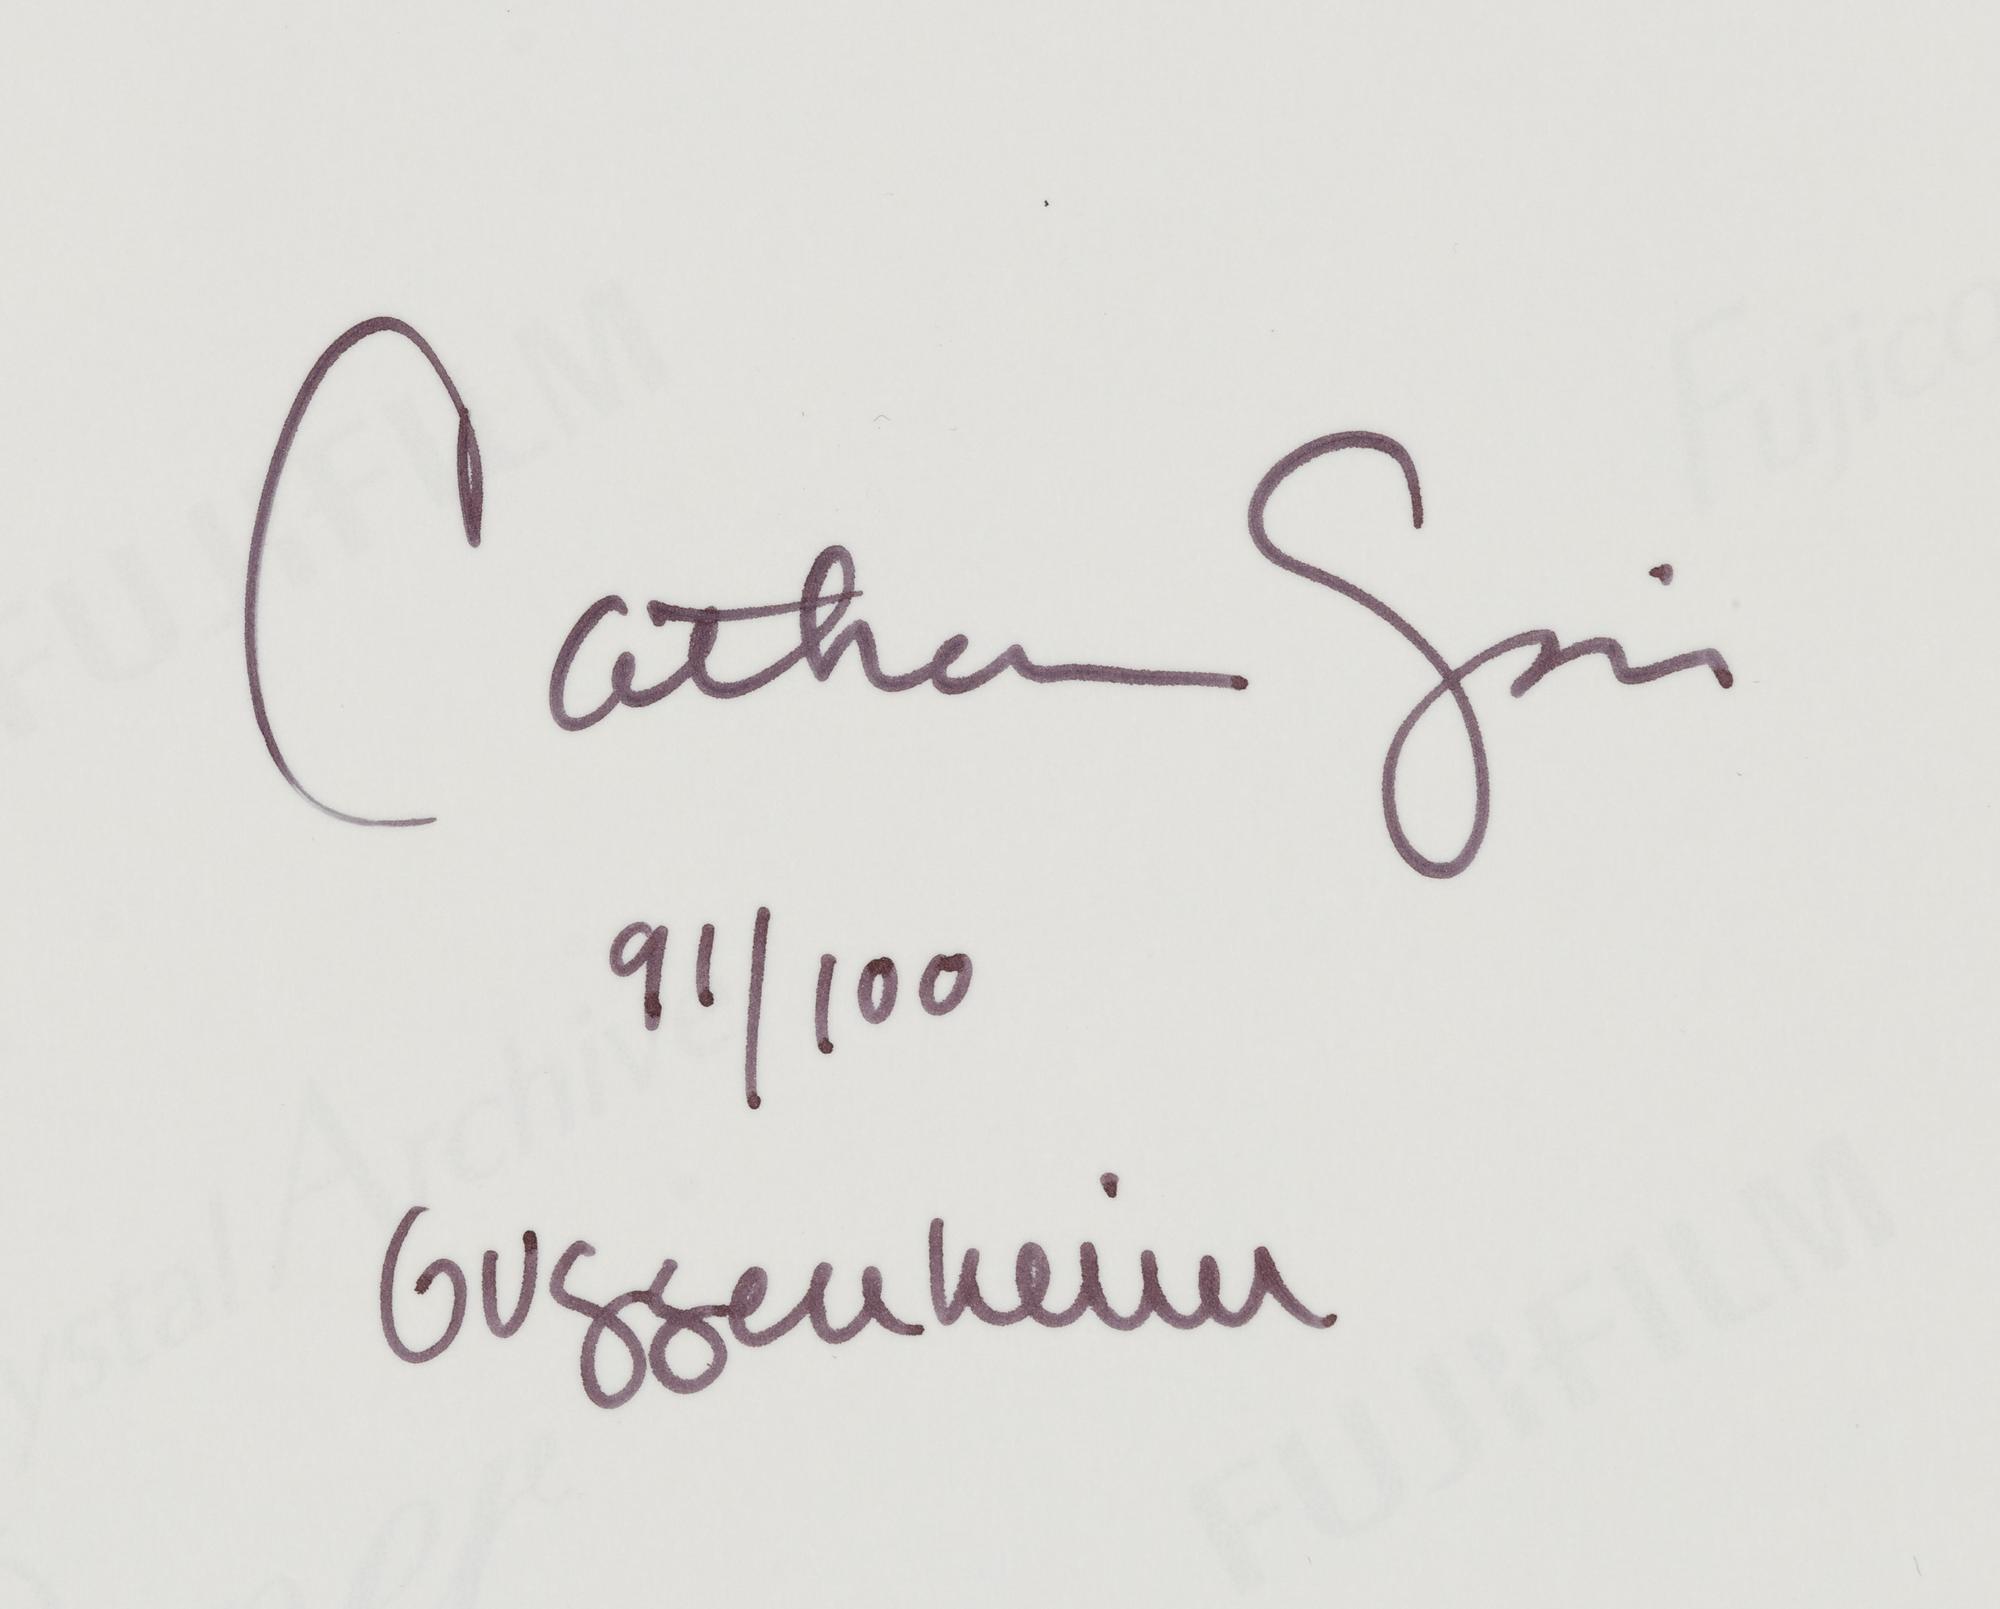 FUJIFILM
Fujico
Catherine
91/100
Crystal Archive
Guggenheim
FUJIFILM